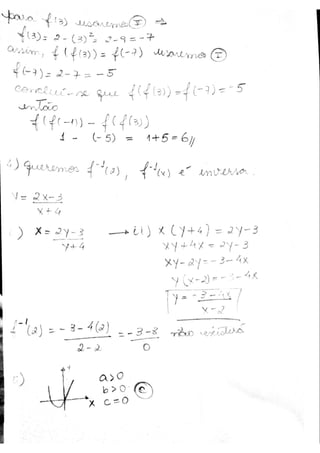 para f(3) usaremos (I) ⇒
f(3) = 2 - (3)² = 2 - 9 = -7
assim, f(f(3)) = f(-7) usaremos (I)
f(-7) = 2 - 7 = -5
conclui-se que f(f(3)) = f(-7) = -5
então
f(f(-1)) - f(f(3))
1 - (-5) = 1+5 = 6//
4) queremos f⁻¹(2), f⁻¹(x) é inversa.
y = 2x-3
x+4
i) x = 2y-3 → ii) x(y+4) = 2y-3
y+4 xy+4x = 2y-3
xy-2y = -3-4x
y(x-2) = -3-4x
y = -3-4x
x-2
f⁻¹(2) = -3-4(2) = -3-8 não existirá
2-2 0
5) y a>0
b>0 (C)
x c=0